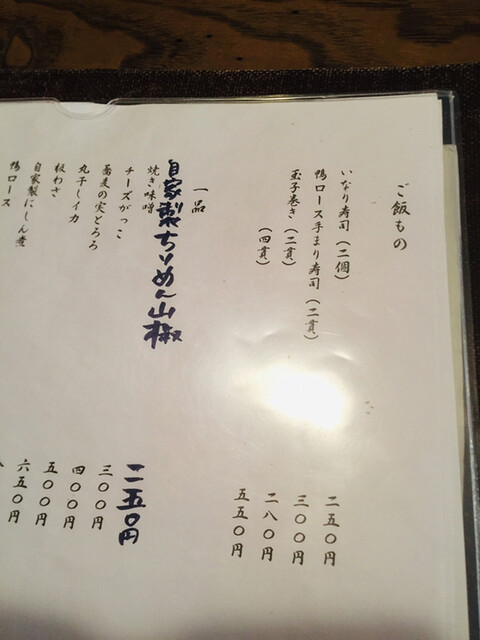 ご飯もの
いなり寿司(二個) 二五〇円
鴨ロース手まり寿司(二貫) 三〇〇円
玉子巻き(二貫) 二八〇円
(四貫) 五五〇円
一品
自家製ちりめん山椒 二五〇円
焼き味噌
チーズがっこ 三〇〇円
蕎麦の実とろろ 四〇〇円
丸干しイカ 五〇〇円
板わさ 六五〇円
自家製にしん煮
鴨ロース